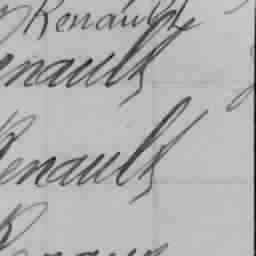 Renault
enault
Renault